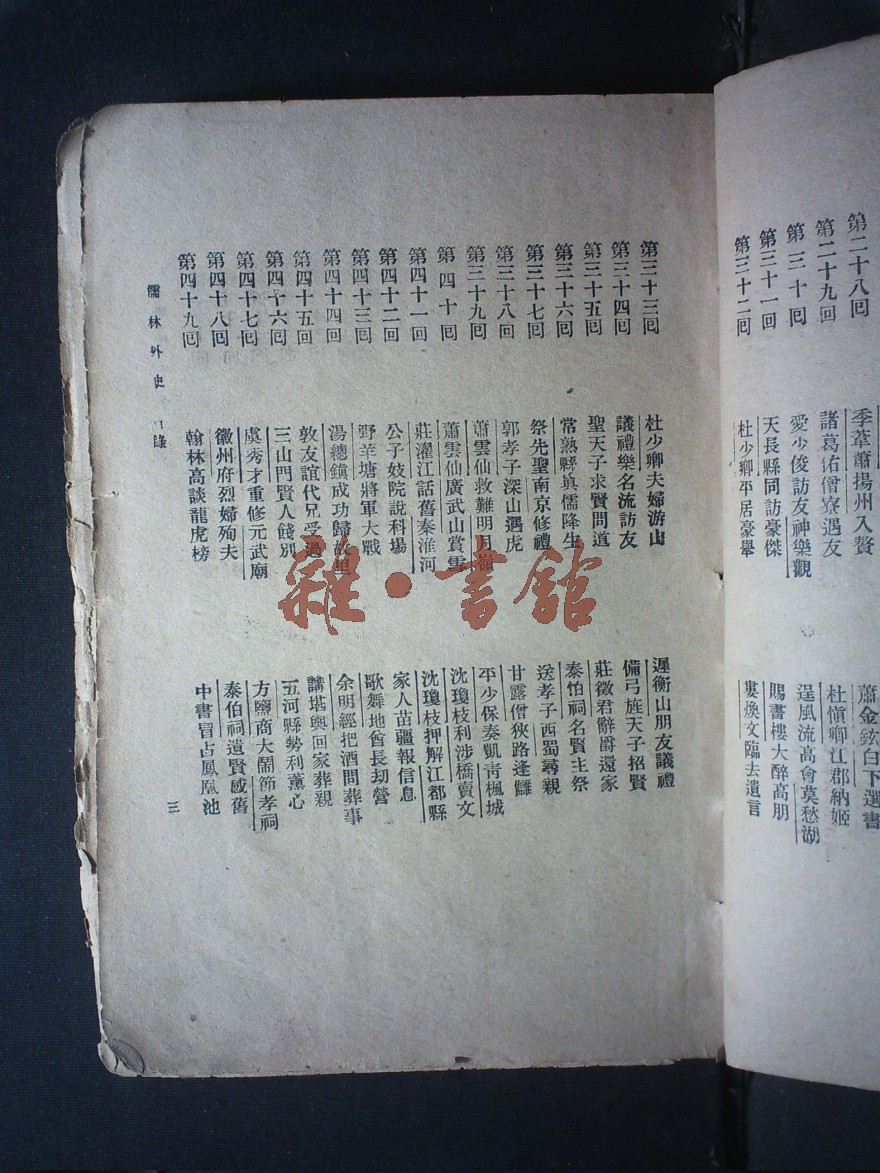 第二十八回 季葦蕭揚州入贅 蕭金鉉白下選書
第二十九回 諸葛佑僧寮遇友 杜慎卿江郡納姬
第三十回 愛少俊訪友神樂觀 逞風流高會莫愁湖
第三十一回 天長縣同訪豪傑 賜書樓大醉高朋
第三十二回 杜少卿平居豪舉 婁煥文臨去遺言
第三十三回 杜少卿夫婦游山 遲衡山朋友議禮
第三十四回 議禮樂名流訪友 備弓旌天子招賢
第三十五回 聖天子求賢問道 莊徵君辭爵還家
第三十六回 常熟縣眞儒降生 泰伯祠名賢主祭
第三十七回 祭先聖南京修禮 送孝子西蜀尋親
第三十八回 郭孝子深山遇虎 甘露僧狹路逢讎
第三十九回 蕭雲仙救難明月嶺 平少保奏凱青楓城
第四十回 蕭雲仙廣武山賞雪 沈瓊枝利涉橋賣文
第四十一回 莊濯江話舊秦淮河 沈瓊枝押解江都縣
第四十二回 公子妓院說科場 家人苗疆報信息
第四十三回 野羊塘將軍大戰 歌舞地酋長劫營
第四十四回 湯總鎭成功歸故里 余明經把酒問葬事
第四十五回 敦友誼代兄受過 講堪輿回家葬親
第四十六回 三山門賢人餞別 五河縣勢利薰心
第四十七回 虞秀才重修元武廟 方鹽商大鬧節孝祠
第四十八回 徽州府烈婦殉夫 泰伯祠遺賢感舊
第四十九回 翰林高談龍虎榜 中書冒占鳳凰池
儒林外史 目錄
三
雜·書館